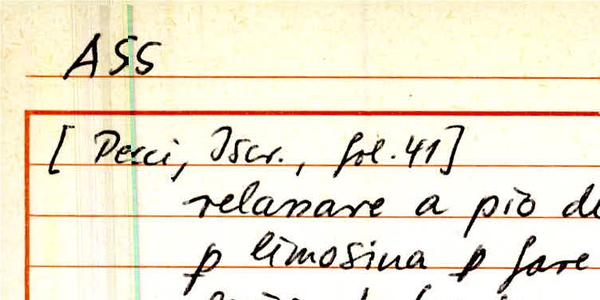 ASS
[Pecci, Iscr., fol. 41]
relassare a pio de
p limosina p fare